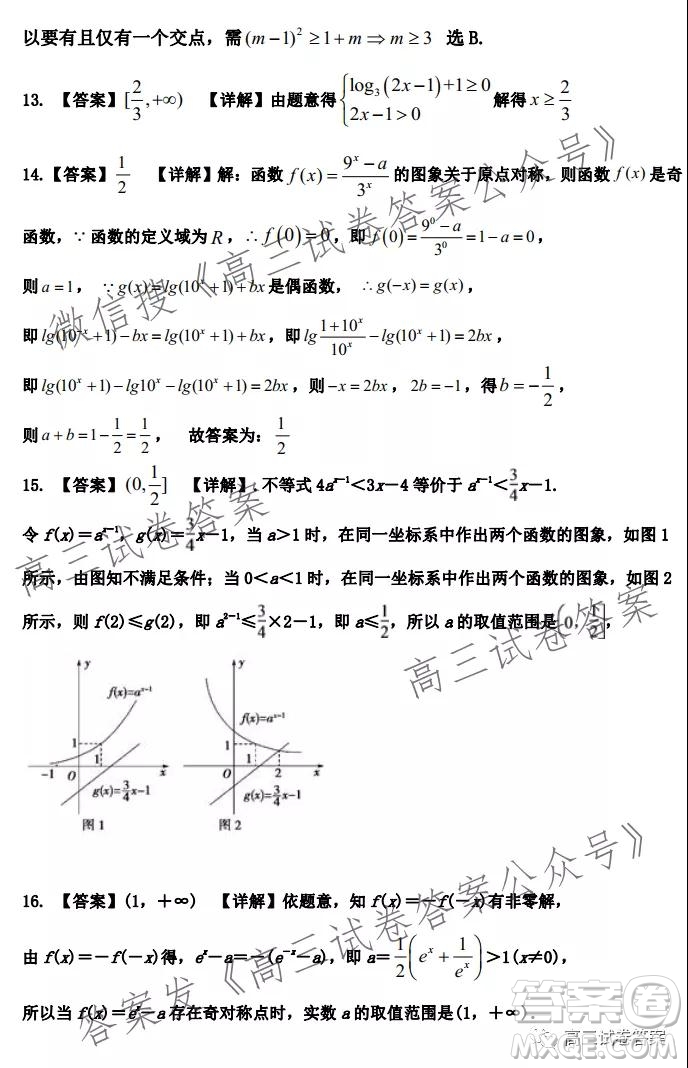 以要有且仅有一个交点，需(m−1)²≥1+m⇒m≥3 选B.
13. 【答案】[2/3,+∞) 【详解】由题意得{log₃(2x−1)+1≥0 2x−1>0 解得x≥2/3
14.【答案】1/2 【详解】解：函数f(x)=(9ˣ−a)/3ˣ的图象关于原点对称，则函数f(x)是奇
函数，∵函数的定义域为R，∴f(0)=0，即f(0)=(9⁰−a)/3⁰=1−a=0，
则a=1， ∵g(x)=lg(10ˣ+1)+bx是偶函数， ∴g(−x)=g(x)，
即lg(10⁻ˣ+1)−bx=lg(10ˣ+1)+bx，即lg(1+10ˣ)/10ˣ−lg(10ˣ+1)=2bx，
即lg(10ˣ+1)−lg10ˣ−lg(10ˣ+1)=2bx，则−x=2bx，2b=−1，得b=−1/2，
则a+b=1−1/2=1/2， 故答案为：1/2
15. 【答案】(0,1/2] 【详解】.不等式4aˣ⁻¹＜3x－4等价于aˣ⁻¹＜3/4x－1.
令f(x)＝aˣ⁻¹，g(x)＝3/4x－1，当a＞1时，在同一坐标系中作出两个函数的图象，如图1
所示，由图知不满足条件；当0＜a＜1时，在同一坐标系中作出两个函数的图象，如图2
所示，则f(2)≤g(2)，即a²⁻¹≤3/4×2－1，即a≤1/2，所以a的取值范围是(0，1/2]，
y f(x)=aˣ⁻¹ 1 −1 O 1 x g(x)=3/4x−1
图1
y f(x)=aˣ⁻¹ 1 O 1 2 x g(x)=3/4x−1
图2
16. 【答案】(1，＋∞) 【详解】依题意，知f(x)＝－f(－x)有非零解，
由f(x)＝－f(－x)得，eˣ－a＝－(e⁻ˣ－a)，即a＝1/2(eˣ+1/eˣ)＞1(x≠0)，
所以当f(x)＝eˣ－a存在奇对称点时，实数a的取值范围是(1，＋∞).
微信搜《高三试卷答案公众号》
高三试卷答案
高三试卷答案
答案发《高三试卷答案公众号》
答案圈
MXQE.COM
高三试卷答案